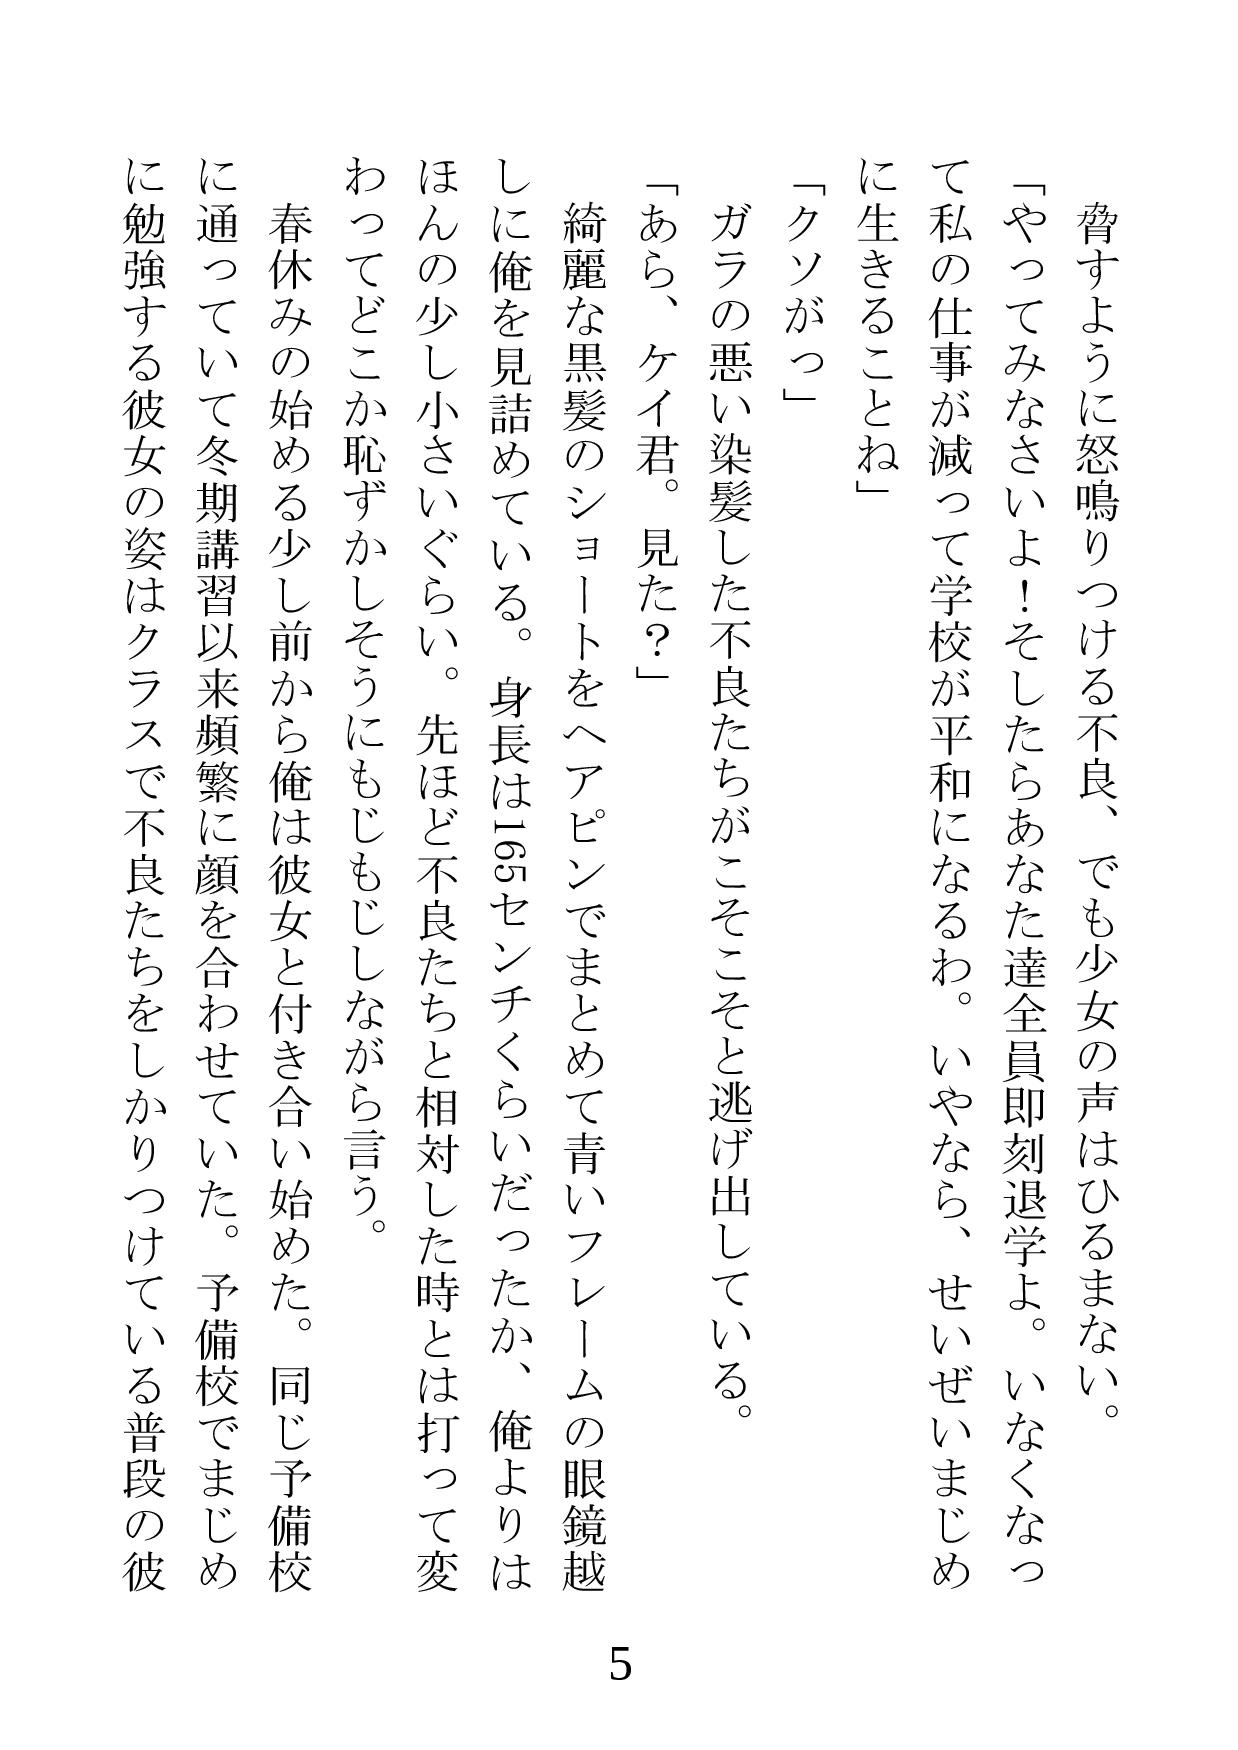 脅すように怒鳴りつける不良、でも少女の声はひるまない。
「やってみなさいよ！そしたらあなた達全員即刻退学よ。いなくなっ
て私の仕事が減って学校が平和になるわ。いやなら、せいぜいまじめ
に生きることね」
「クソがっ」
　ガラの悪い染髪した不良たちがこそこそと逃げ出している。
「あら、ケイ君。見た？」
　綺麗な黒髪のショートをヘアピンでまとめて青いフレームの眼鏡越
しに俺を見詰めている。身長は165センチくらいだったか、俺よりは
ほんの少し小さいぐらい。先ほど不良たちと相対した時とは打って変
わってどこか恥ずかしそうにもじもじしながら言う。
　春休みの始める少し前から俺は彼女と付き合い始めた。同じ予備校
に通っていて冬期講習以来頻繁に顔を合わせていた。予備校でまじめ
に勉強する彼女の姿はクラスで不良たちをしかりつけている普段の彼
5